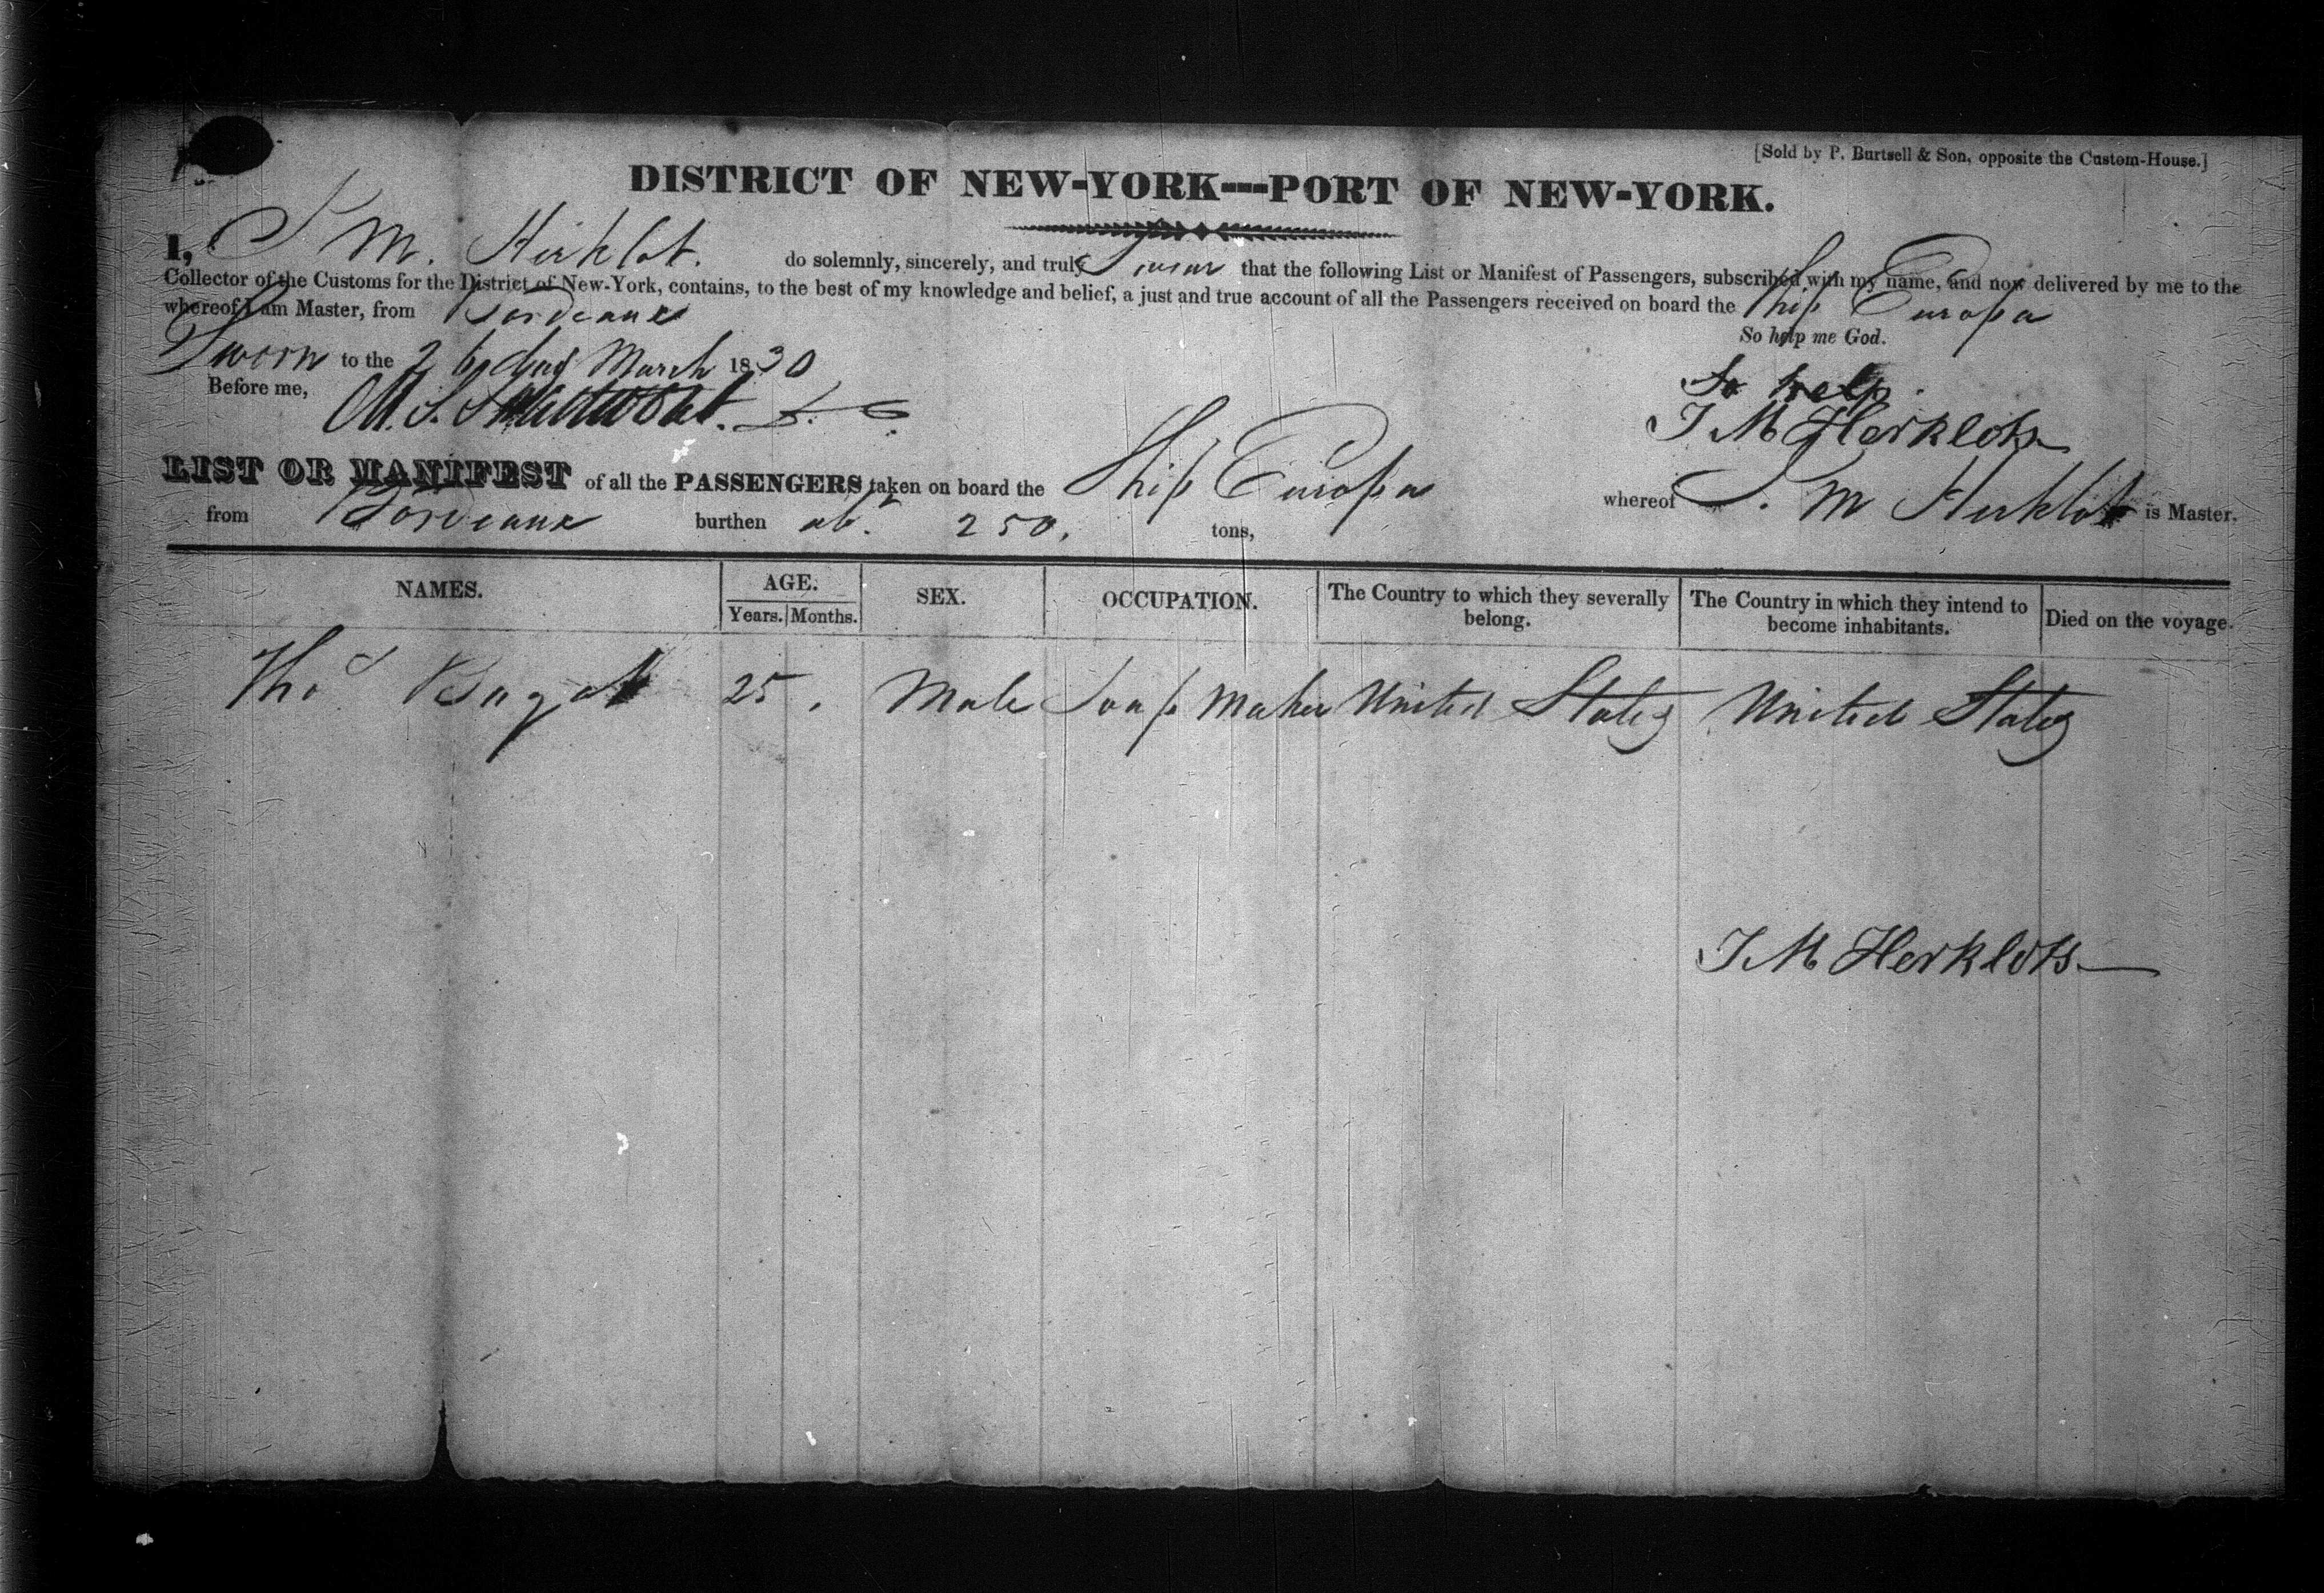 [Sold by P. Burtsell & Son, opposite the Custom-House.]
DISTRICT OF NEW-YORK---PORT OF NEW-YORK.
I, J M. Herklot. do solemnly, sincerely, and truly Swear that the following List or Manifest of Passengers, subscribed with my name, and now delivered by me to the
Collector of the Customs for the District of New-York, contains, to the best of my knowledge and belief, a just and true account of all the Passengers received on board the Ship Europa
whereof I am Master, from Bordeaux
So help me God.
Sworn to the 26 day March 1830
So help
Before me,
J M Herklots
LIST OR MANIFEST of all the PASSENGERS taken on board the Ship Europa whereof J. M Herklots is Master.
from Bordeaux burthen abt 250. tons,
NAMES. AGE. SEX. OCCUPATION. The Country to which they severally belong. The Country in which they intend to become inhabitants. Died on the voyage.
Years. Months.
Thos 25. Male Soap Maker United States United States
J M Herklots